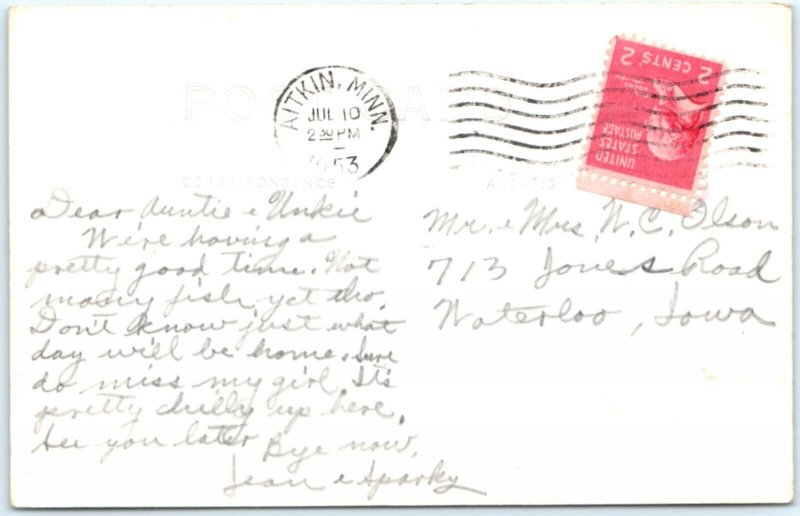 POST CARD
AITKIN, MINN.
JUL 10
2 30 PM
1953
2 CENTS 2
UNITED
STATES
POSTAGE
CORRESPONDENCE
ADDRESS
Dear Auntie & Unkie
We're having a
pretty good time. Not
many fish yet tho.
Don't know just what
day will be home. Sure
do miss my girl. It's
pretty chilly up here.
See you later
Bye now,
Jean & Sparky
Mr. & Mrs. W. C. Olson
713 Jones Road
Waterloo, Iowa